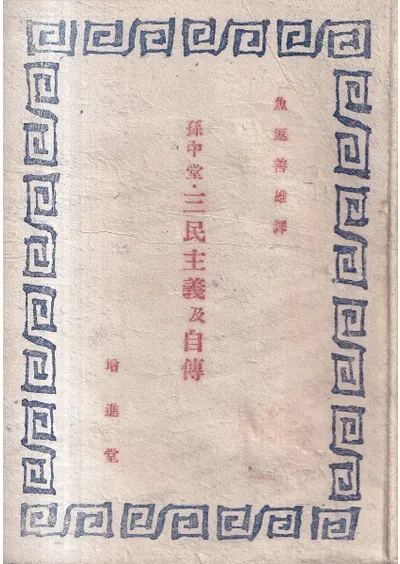 魚返善雄譯
孫中堂・三民主義及自傳
增進堂